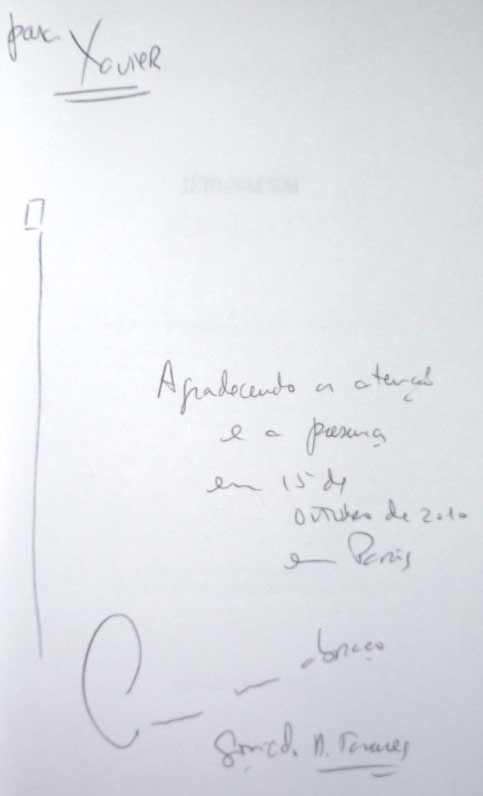 para
Xavier
Agradecendo a atenção
e a presença
em 15 de
outubro de 2010
em Paris
C — — abraço
Gonçalo M. Tavares